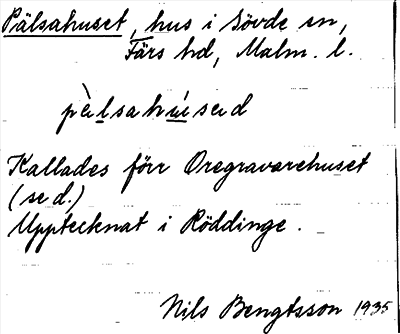 Pälsahuset, hus i Sövde sn,
Färs hd, Malm. l.
pèlsahúsed
Kallades förr Oregravarehuset
(se d.)
Upptecknat i Röddinge.
Nils Bengtsson 1935